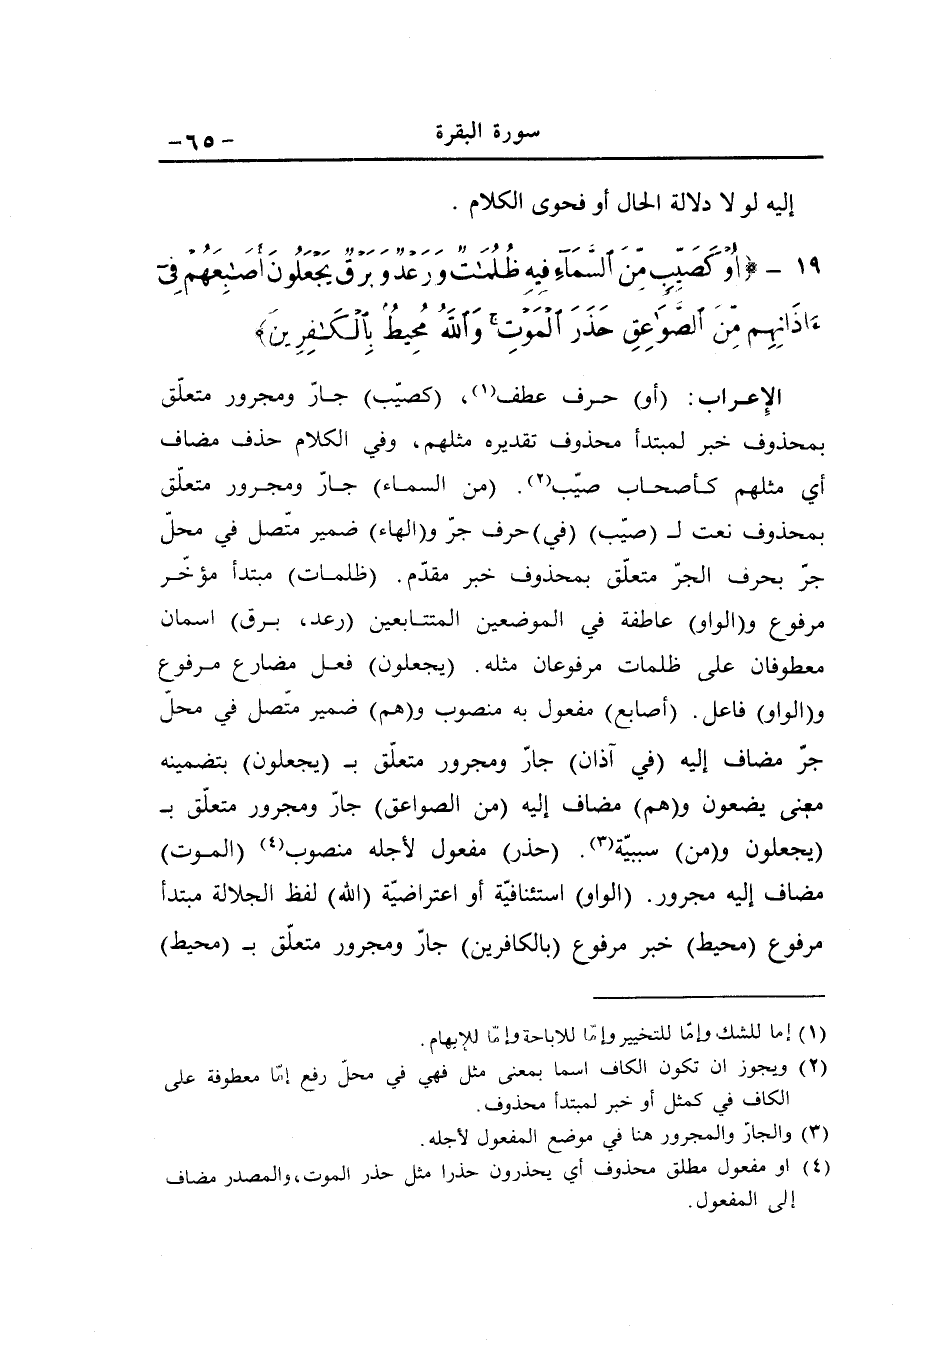 سورة البقرة -٦٥-
إليه لو لا دلالة الحال أو فحوى الكلام .
١٩ - ﴿أَوْ كَصَيِّبٍ مِّنَ ٱلسَّمَآءِ فِيهِ ظُلُمَٰتٌ وَرَعْدٌ وَبَرْقٌ يَجْعَلُونَ أَصَٰبِعَهُمْ فِىٓ
ءَاذَانِهِم مِّنَ ٱلصَّوَٰعِقِ حَذَرَ ٱلْمَوْتِ ۚ وَٱللَّهُ مُحِيطٌ بِٱلْكَٰفِرِينَ﴾
الإعـراب: (أو) حـرف عطف(١)، (كصيّب) جـارّ ومجرور متعلّق
بمحذوف خبر لمبتدأ محذوف تقديره مثلهم، وفي الكلام حذف مضاف
أي مثلهم كـأصحـاب صيّب(٢). (من السمـاء) جـارّ ومجـرور متعلّق
بمحذوف نعت لـ (صيّب) (في)حرف جرّ و(الهاء) ضمير متّصل في محلّ
جرّ بحرف الجرّ متعلّق بمحذوف خبر مقدّم. (ظلمات) مبتدأ مؤخّـر
مرفوع و(الواو) عاطفة في الموضعين المتتـابعين (رعد، بـرق) اسمان
معطوفان على ظلمات مرفوعان مثله. (يجعلون) فعـل مضارع مـرفوع
و(الواو) فاعل. (أصابع) مفعول به منصوب و(هم) ضمير متّصل في محلّ
جرّ مضاف إليه (في آذان) جارّ ومجرور متعلّق بـ (يجعلون) بتضمينه
معنى يضعون و(هم) مضاف إليه (من الصواعق) جارّ ومجرور متعلّق بـ
(يجعلون و(من) سببيّة(٣). (حذر) مفعول لأجله منصوب(٤) (المـوت)
مضاف إليه مجرور. (الواو) استئنافيّة أو اعتراضيّة (الله) لفظ الجلالة مبتدأ
مرفوع (محيط) خبر مرفوع (بالكافرين) جارّ ومجرور متعلّق بـ (محيط)
(١) إما للشك وإمّا للتخيير وإمّا للاباحة وإمّا للإبهام.
(٢) ويجوز ان تكون الكاف اسما بمعنى مثل فهي في محلّ رفع إمّا معطوفة على
الكاف في كمثل أو خبر لمبتدأ محذوف.
(٣) والجارّ والمجرور هنا في موضع المفعول لأجله.
(٤) او مفعول مطلق محذوف أي يحذرون حذرا مثل حذر الموت،والمصدر مضاف
إلى المفعول.